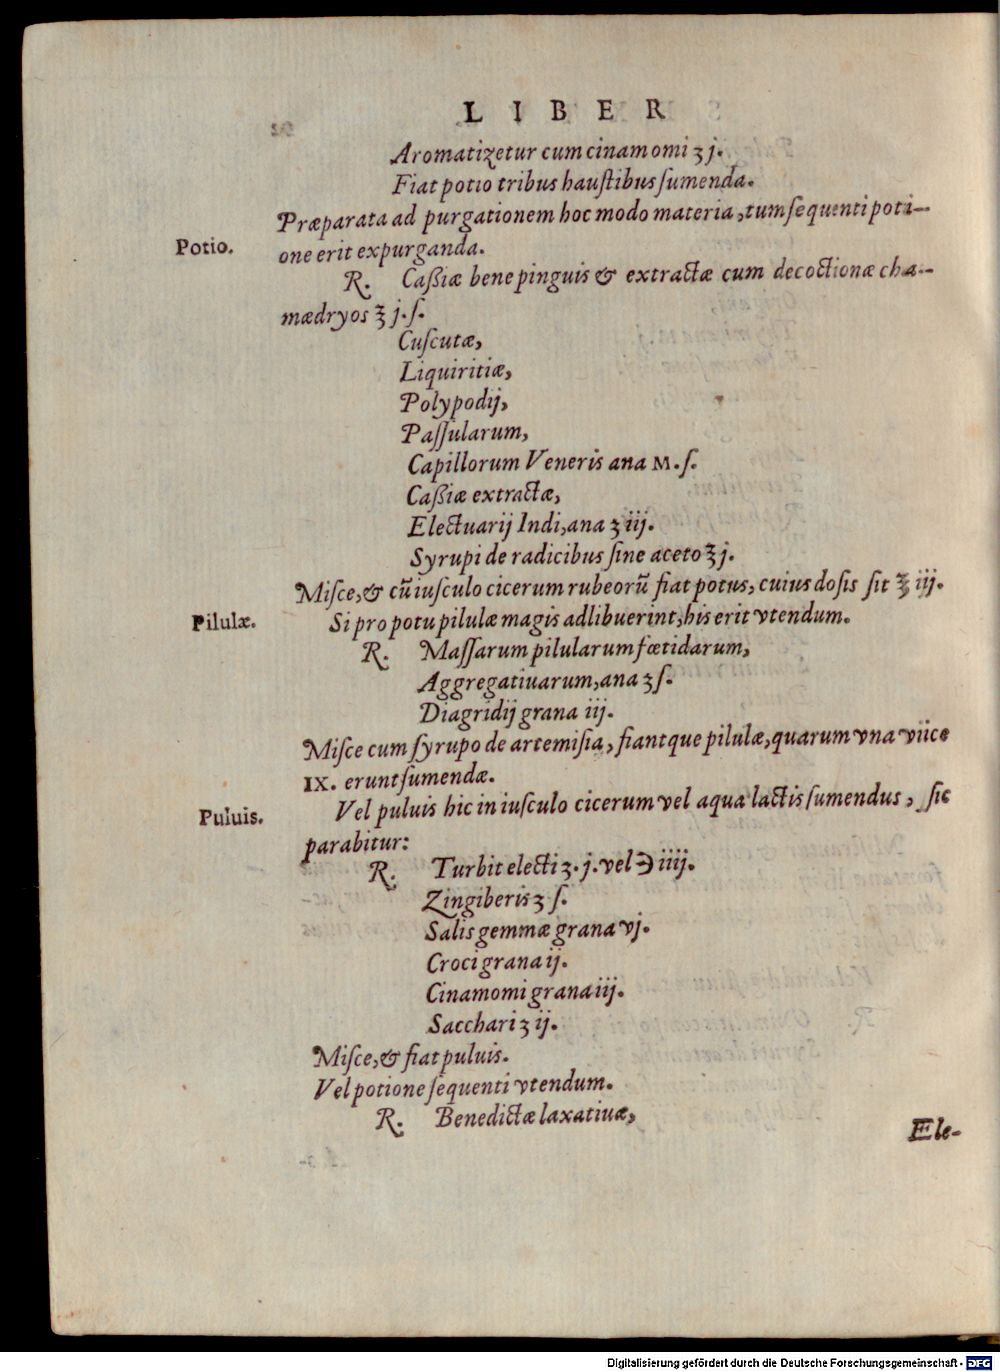 LIBER
Aromatizetur cum cinamomi ʒ j.
Fiat potio tribus haustibus sumenda.
Præparata ad purgationem hoc modo materia, tum sequenti poti-
Potio. one erit expurganda.
R. Cassiæ bene pinguis & extractæ cum decoctionæ cha-
mædryos ℥ j. ſ.
Cuscutæ,
Liquiritiæ,
Polypodij,
Passularum,
Capillorum Veneris ana M. ſ.
Cassiæ extractæ,
Electuarij Indi, ana ʒ iij.
Syrupi de radicibus sine aceto ℥ j.
Misce, & cũ iusculo cicerum rubeorũ fiat potus, cuius dosis sit ℥ iij.
Pilulæ. Si pro potu pilulæ magis adlibuerint, his erit vtendum.
R. Massarum pilularum fœtidarum,
Aggregatiuarum, ana ʒ ſ.
Diagridij grana iij.
Misce cum syrupo de artemisia, fiantque pilulæ, quarum vna vice
IX. erunt sumendæ.
Puluis. Vel puluis hic in iusculo cicerum vel aqua lactis sumendus, sic
parabitur:
R. Turbit electi ʒ. j. vel ℈ iiij.
Zingiberis ʒ ſ.
Salis gemmæ grana vj.
Croci grana ij.
Cinamomi grana iij.
Sacchari ʒ ij.
Misce, & fiat puluis.
Vel potione sequenti vtendum.
R. Benedictæ laxatiuæ,
Ele-
Digitalisierung gefördert durch die Deutsche Forschungsgemeinschaft - DFG